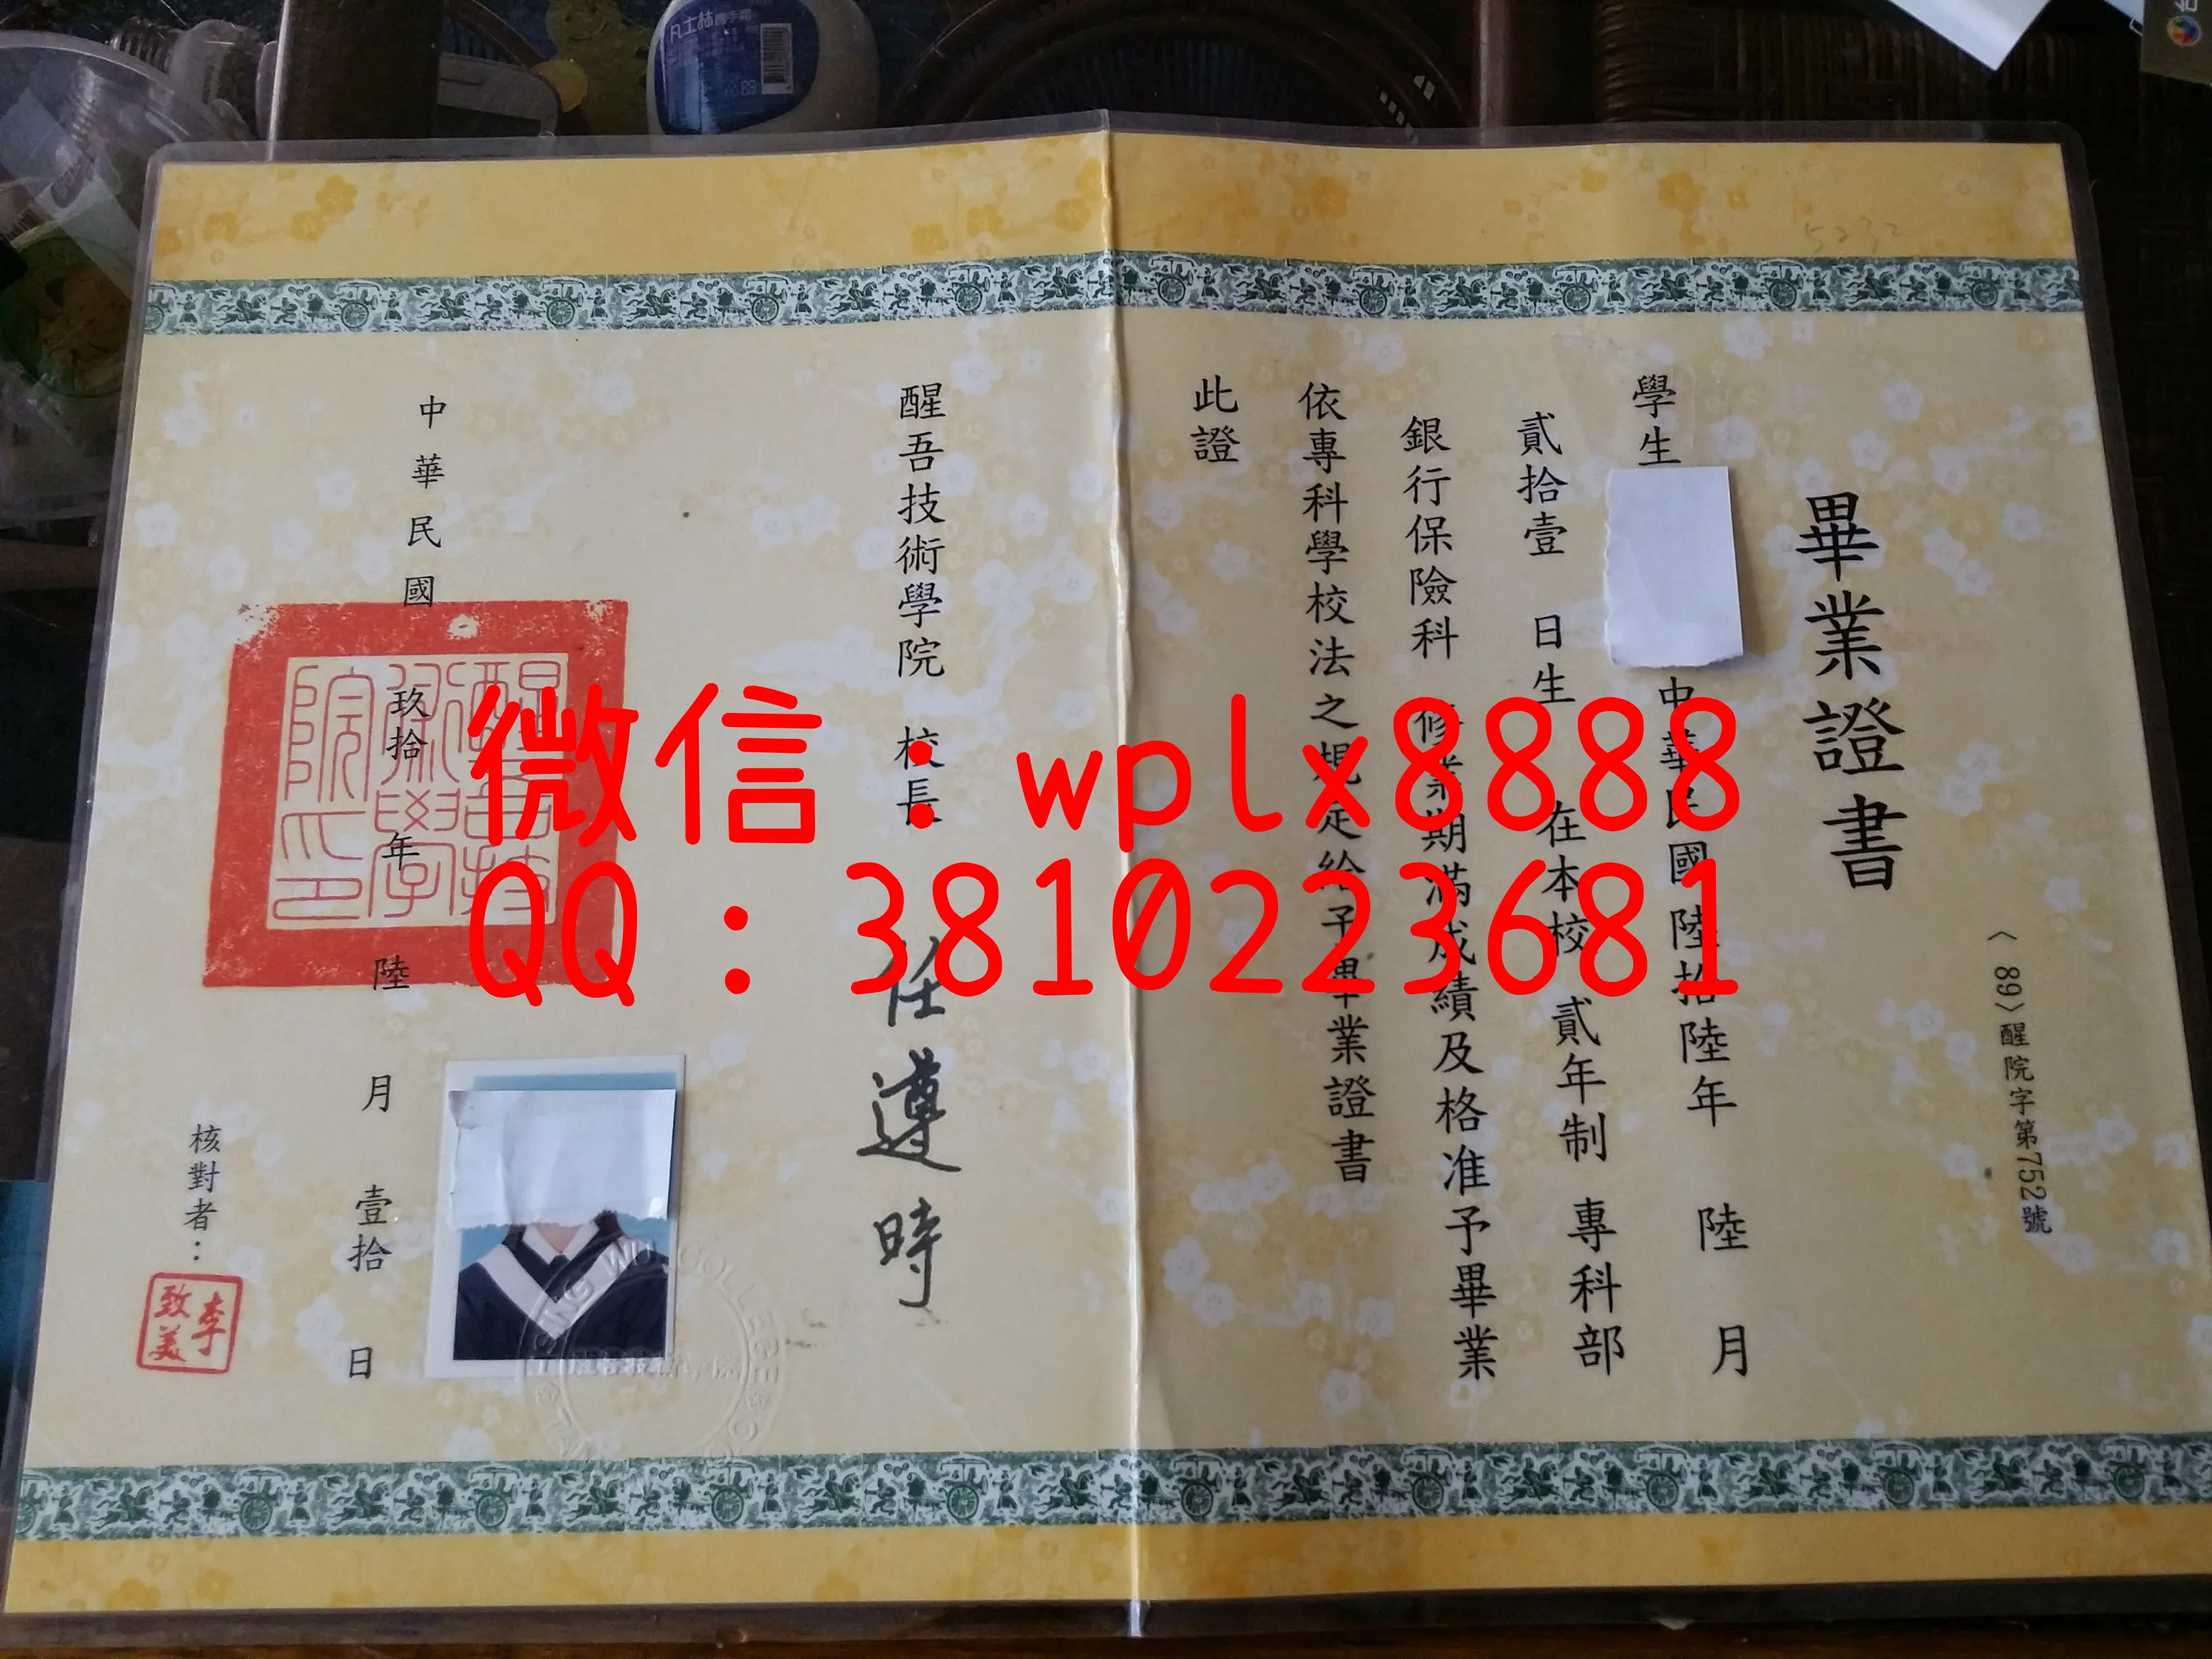 〈89〉醒院字第752號
5232
畢業證書
學生
中華民國陸拾陸年 陸 月
貳拾壹 日生 在本校 貳年制 專科部
銀行保險科 修業期滿成績及格准予畢業
依專科學校法之規定給予畢業證書
此證
醒吾技術學院 校長 任遵時
中華民國 玖拾 年 陸 月 壹拾 日
醒吾技術學院印
核對者：
李致美
微信：wplx8888
QQ：3810223681
凡士林